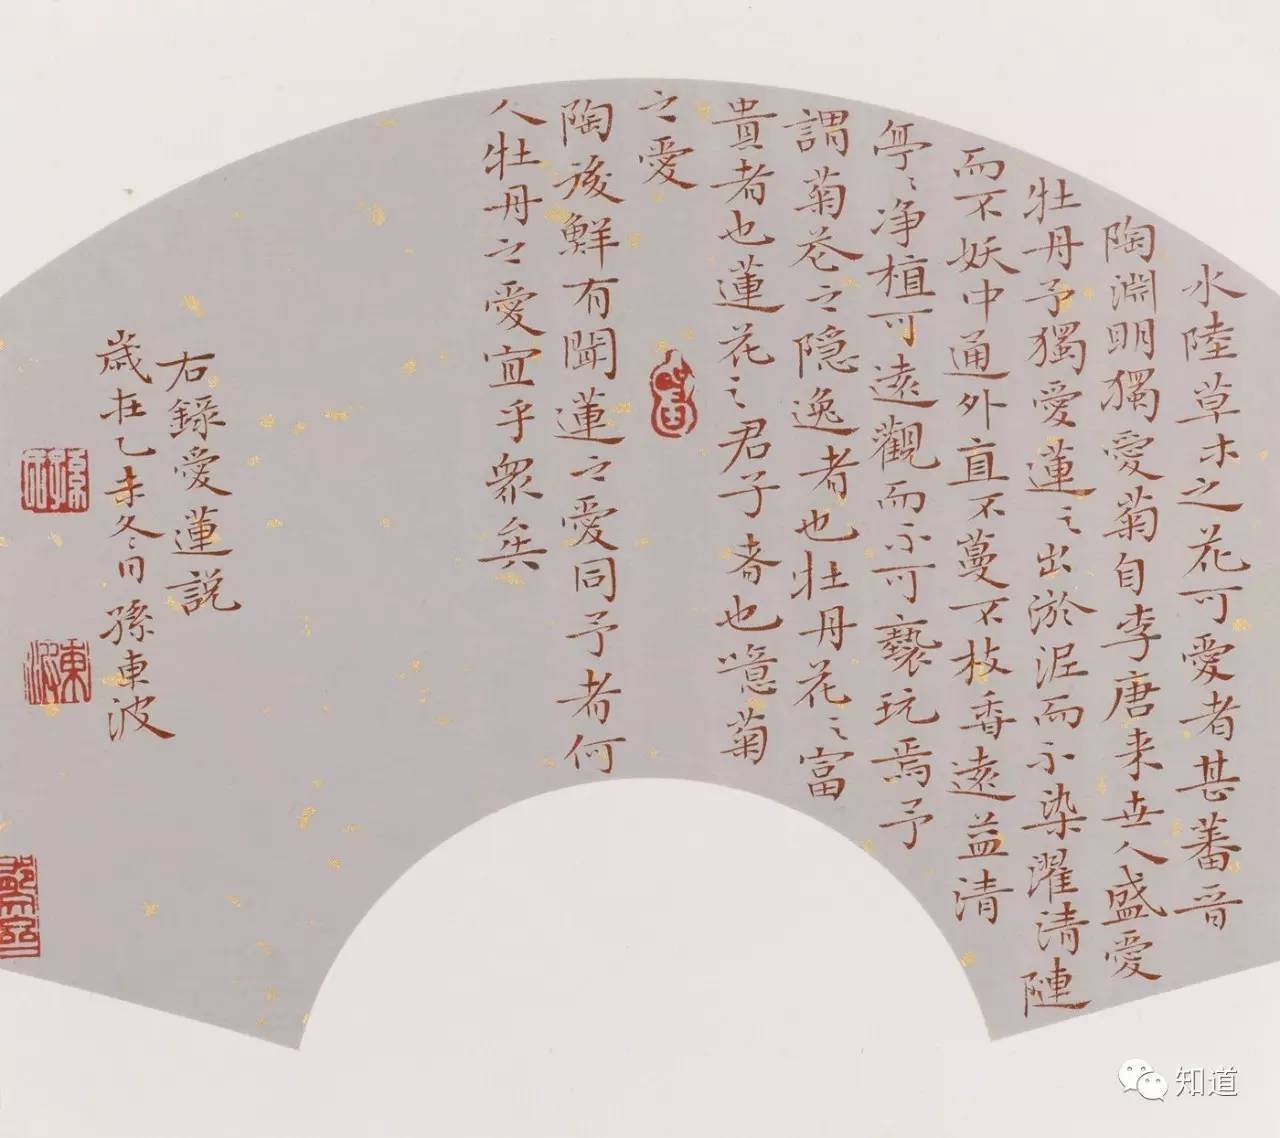 水陸草木之花可愛者甚蕃晉
陶淵明獨愛菊自李唐来世人盛愛
牡丹予獨愛蓮之出淤泥而不染濯清漣
而不妖中通外直不蔓不枝香遠益清
亭々净植可遠觀而不可褻玩焉予
謂菊花之隐逸者也牡丹花之富
貴者也蓮花之君子者也噫菊
之愛
陶後鮮有聞蓮之愛同予者何
人牡丹之愛宜乎衆矣
右錄愛蓮説
歲在乙未冬日孫東波
孫印
東波
知道